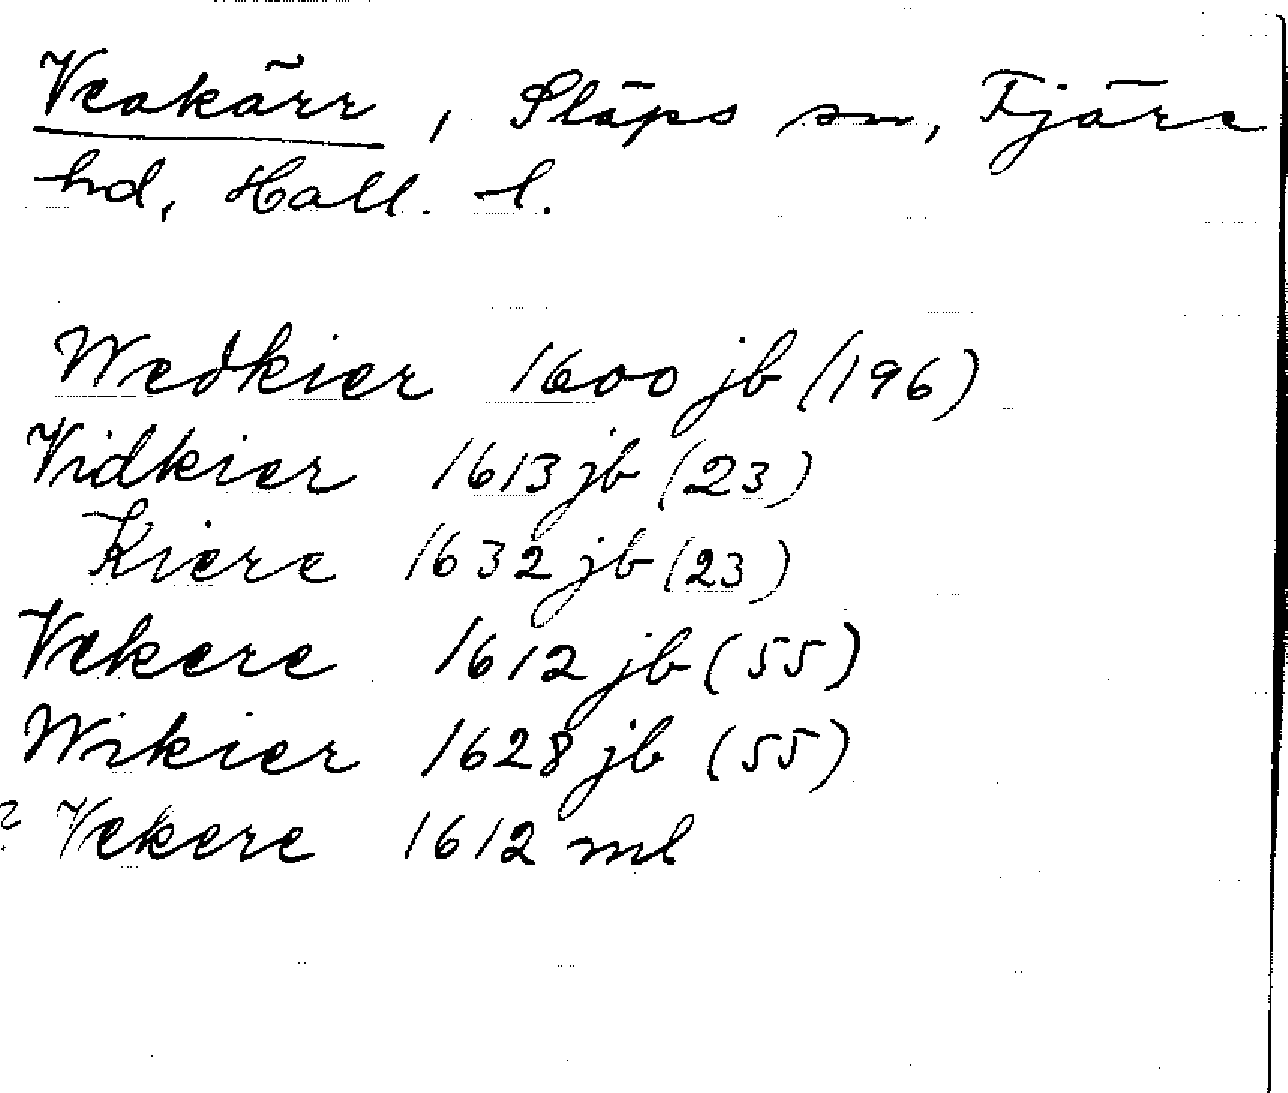 Veakärr, Släps sn, Fjäre
hd, Hall. l.
Wedkier 1600 jb (196)
Vidkier 1613 jb (23)
Kiere 1632 jb (23)
Vekere 1612 jb (55)
Wikier 1628 jb (55)
? Vekere 1612 ml